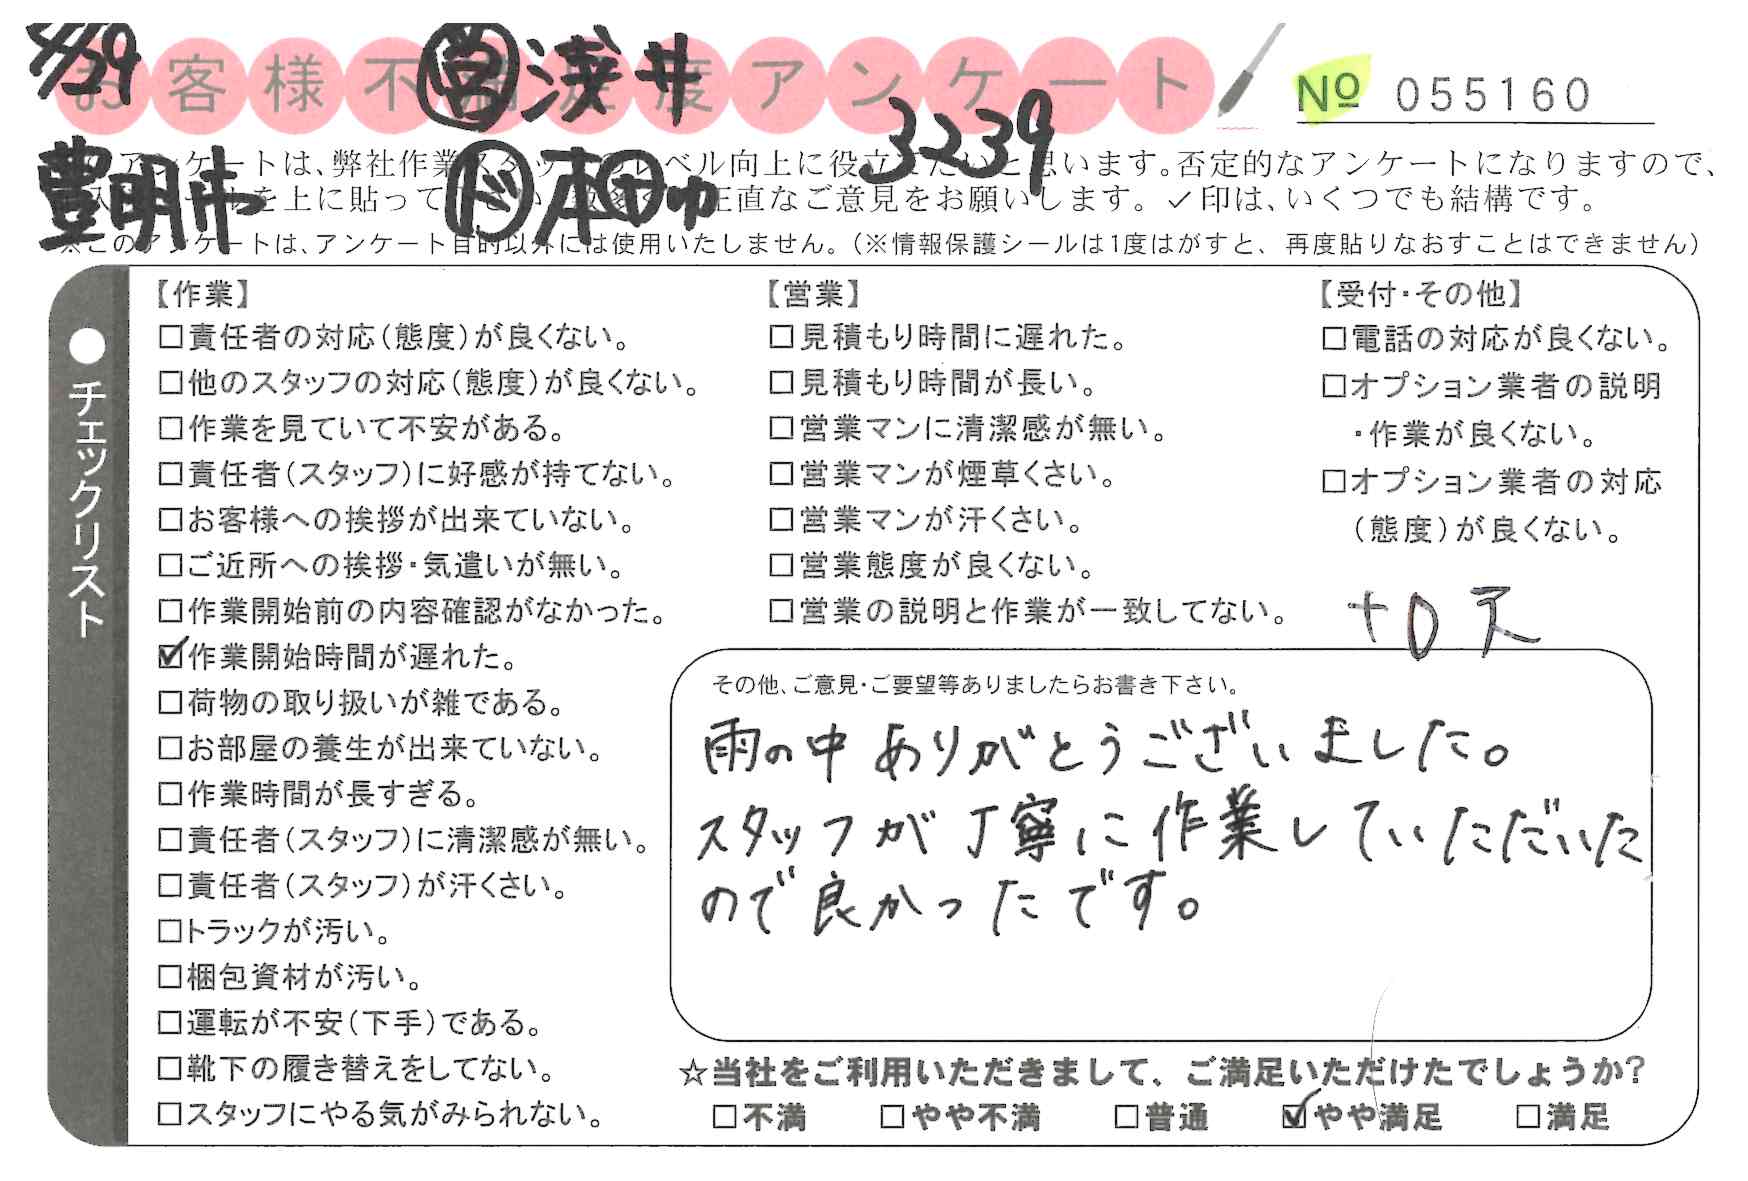 お客様不満足度アンケート
/29
㊂浅井
3239
№ 055160
豊明市
ド 本田
アンケートは、弊社作業スタッフのレベル向上に役立てたいと思います。否定的なアンケートになりますので、
を上に貼って 正直なご意見をお願いします。✓印は、いくつでも結構です。
※このアンケートは、アンケート目的以外には使用いたしません。（※情報保護シールは1度はがすと、再度貼りなおすことはできません）
●チェックリスト
【作業】
□責任者の対応（態度）が良くない。
□他のスタッフの対応（態度）が良くない。
□作業を見ていて不安がある。
□責任者（スタッフ）に好感が持てない。
□お客様への挨拶が出来ていない。
□ご近所への挨拶・気遣いが無い。
□作業開始前の内容確認がなかった。
☑作業開始時間が遅れた。
□荷物の取り扱いが雑である。
□お部屋の養生が出来ていない。
□作業時間が長すぎる。
□責任者（スタッフ）に清潔感が無い。
□責任者（スタッフ）が汗くさい。
□トラックが汚い。
□梱包資材が汚い。
□運転が不安（下手）である。
□靴下の履き替えをしてない。
□スタッフにやる気がみられない。
【営業】
□見積もり時間に遅れた。
□見積もり時間が長い。
□営業マンに清潔感が無い。
□営業マンが煙草くさい。
□営業マンが汗くさい。
□営業態度が良くない。
□営業の説明と作業が一致してない。
【受付・その他】
□電話の対応が良くない。
□オプション業者の説明
・作業が良くない。
□オプション業者の対応
（態度）が良くない。
その他、ご意見・ご要望等ありましたらお書き下さい。
雨の中ありがとうございました。
スタッフが丁寧に作業していただいた
ので良かったです。
☆当社をご利用いただきまして、ご満足いただけたでしょうか？
□不満 □やや不満 □普通 ☑やや満足 □満足